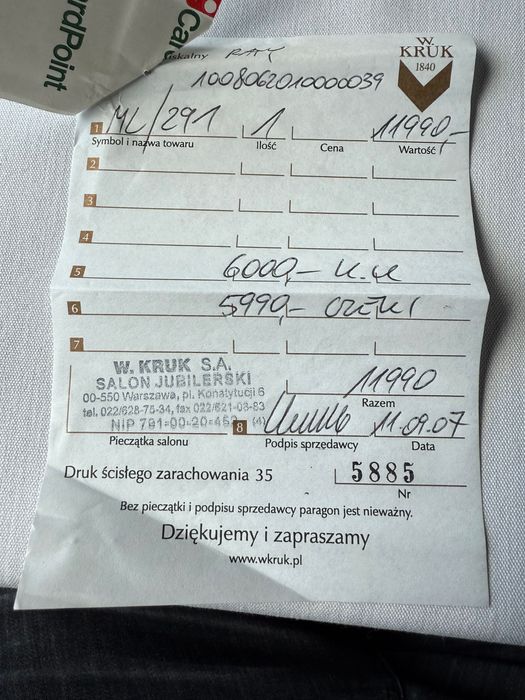 CardPoint
W.
KRUK
1840
fiskalny RAT
1008062010000039
1 ML/291 1 11990,-
Symbol i nazwa towaru Ilość Cena Wartość
2
3
4
5 6000,- K.K
6 5990,- czeki
7
W. KRUK S.A.
SALON JUBILERSKI
00-550 Warszawa, pl. Konstytucji 6
tel. 022/628-75-34, fax 022/621-08-83
NIP 781-00-20-452 (4)
11990
Razem
8 11.09.07
Pieczątka salonu Podpis sprzedawcy Data
Druk ścisłego zarachowania 35 5885
Nr
Bez pieczątki i podpisu sprzedawcy paragon jest nieważny.
Dziękujemy i zapraszamy
www.wkruk.pl